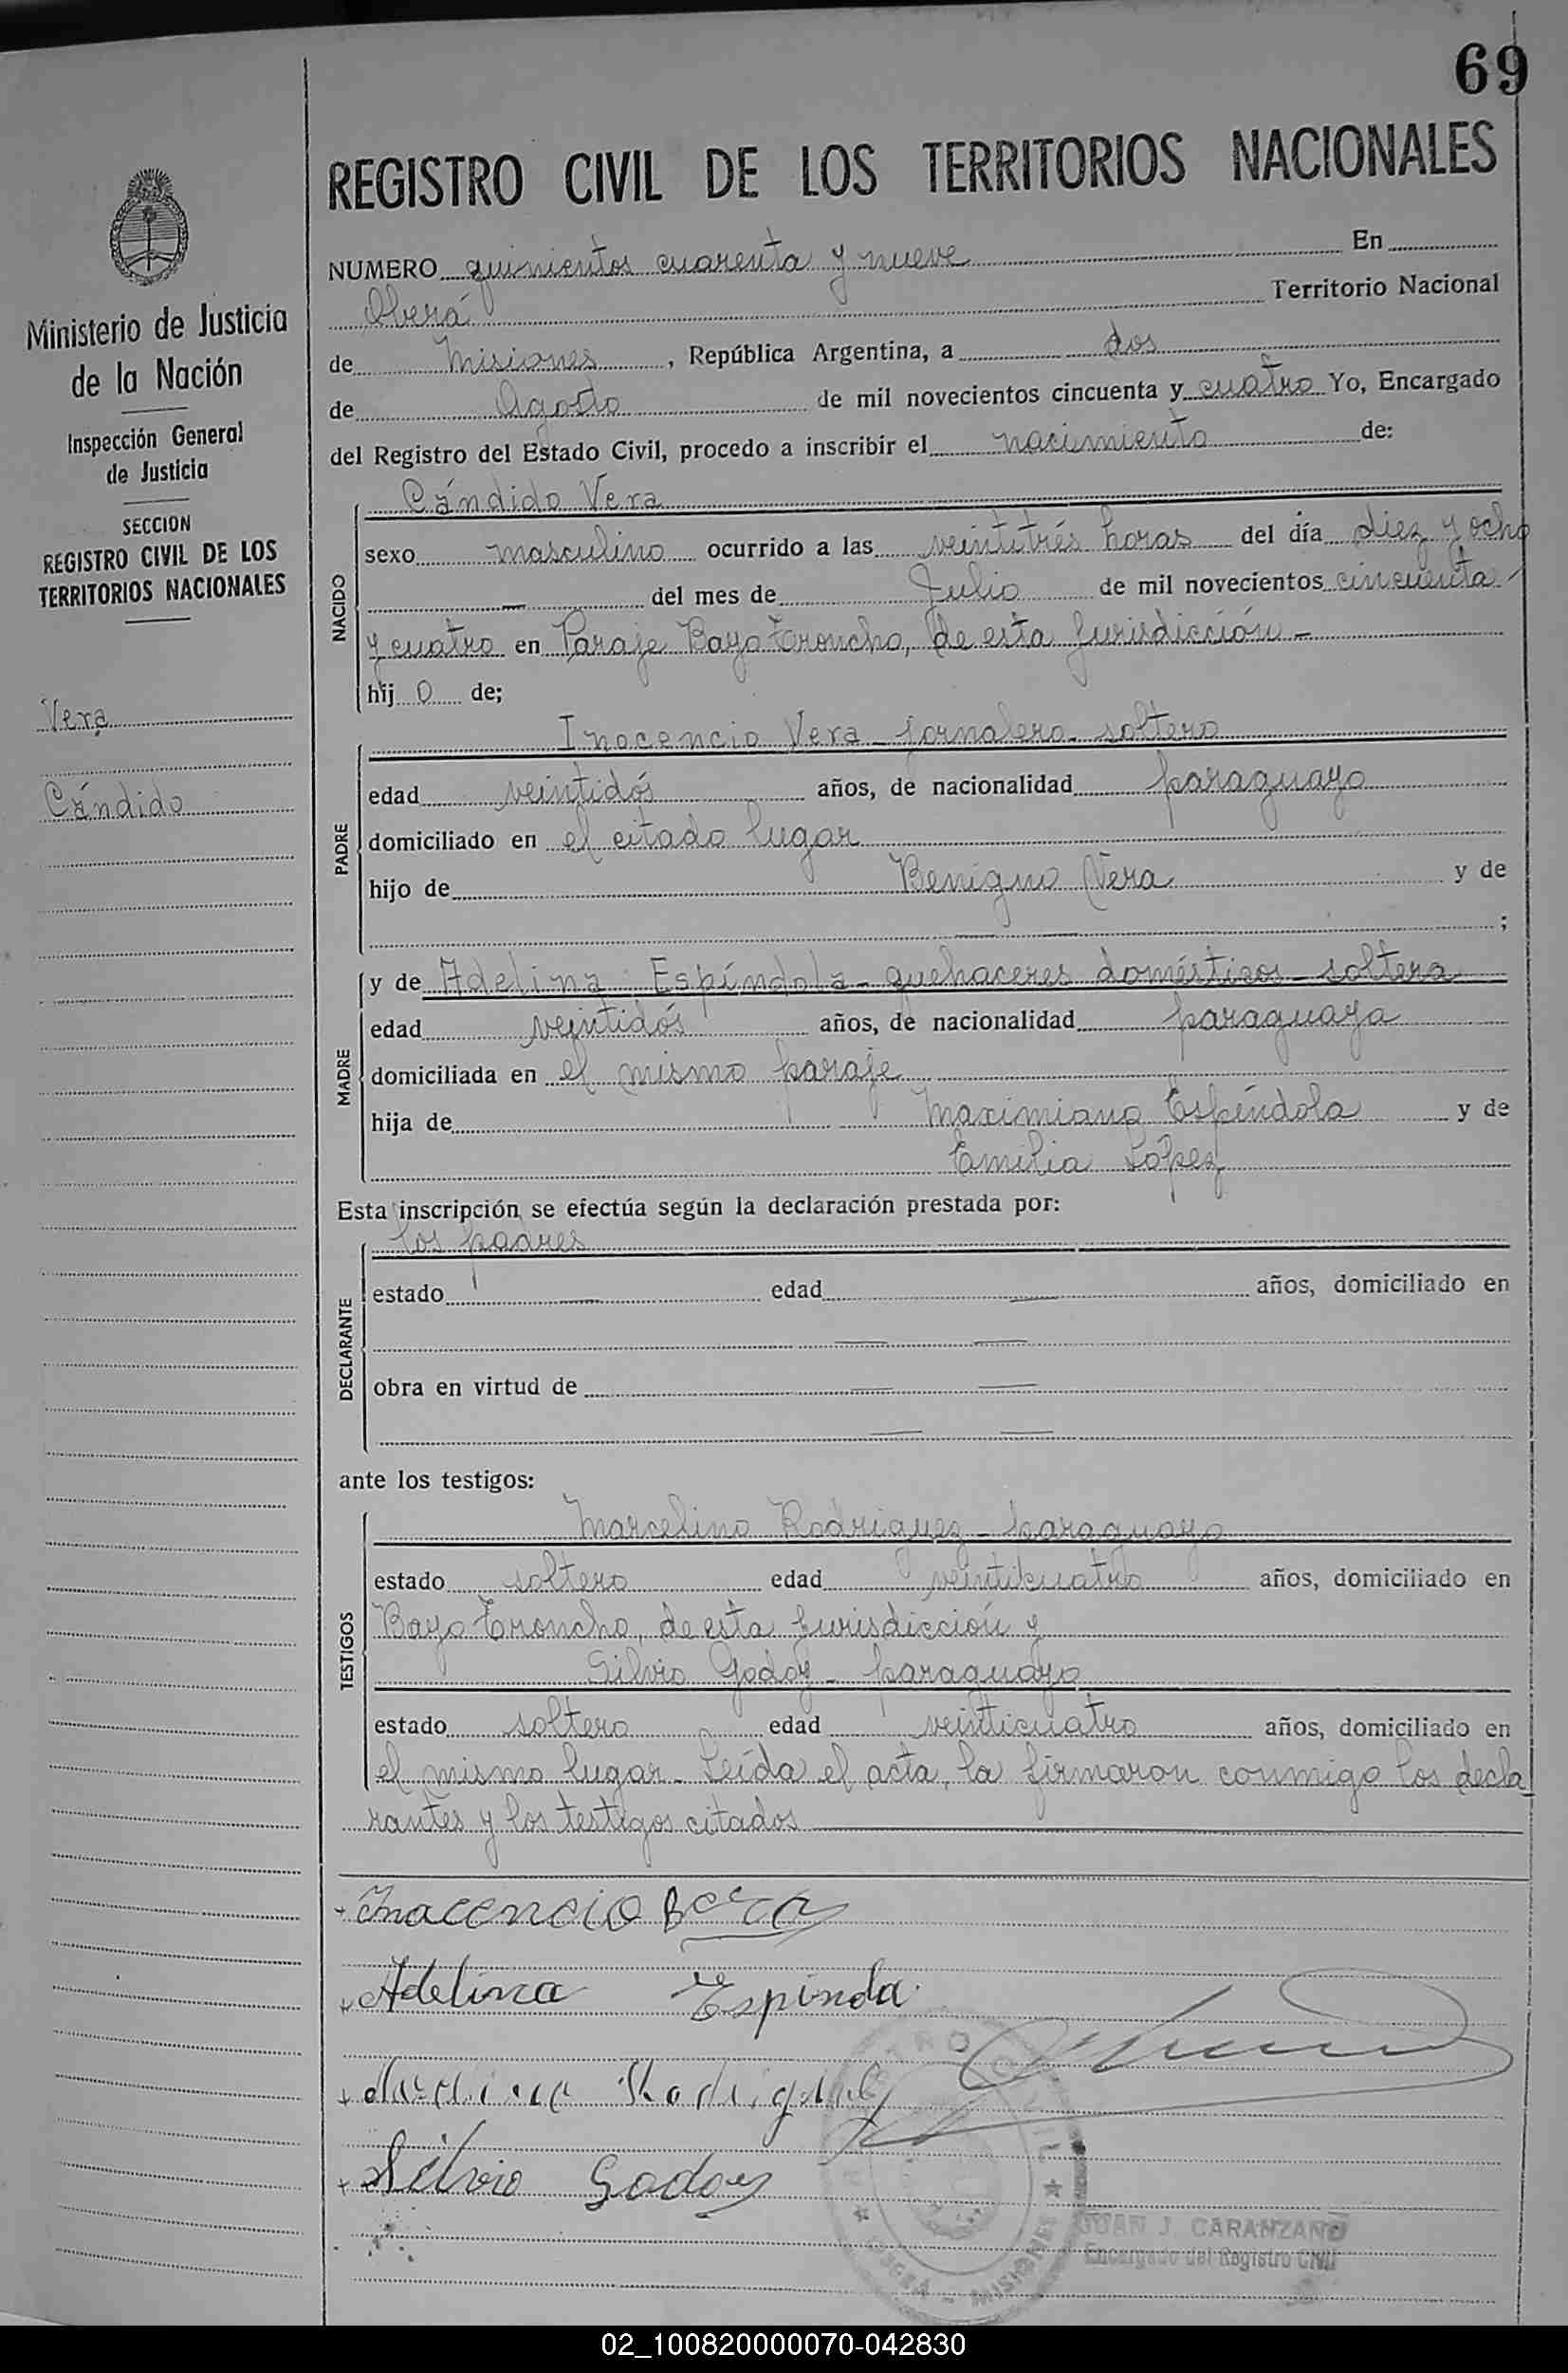 69
REGISTRO CIVIL DE LOS TERRITORIOS NACIONALES
NUMERO quinientos cuarenta y nueve En
Oberá Territorio Nacional
de Misiones, República Argentina, a dos
de Agosto de mil novecientos cincuenta y cuatro Yo, Encargado
del Registro del Estado Civil, procedo a inscribir el nacimiento de:
Ministerio de Justicia
de la Nación
Inspección General
de Justicia
SECCION
REGISTRO CIVIL DE LOS
TERRITORIOS NACIONALES
Vera
Cándido
NACIDO
Cándido Vera
sexo masculino ocurrido a las veintitrés horas del día diez y ocho
— del mes de Julio de mil novecientos cincuenta
y cuatro en Paraje Bayo Troncho, de esta jurisdicción -
hij o de;
PADRE
Inocencio Vera - jornalero - soltero
edad veintidós años, de nacionalidad paraguayo
domiciliado en el citado lugar
hijo de Benigno Vera y de
— — ;
MADRE
y de Adelina Espíndola - quehaceres domésticos - soltera
edad veintidós años, de nacionalidad paraguaya
domiciliada en el mismo paraje
hija de Maximiano Espíndola y de
Emilia López
Esta inscripción se efectúa según la declaración prestada por:
DECLARANTE
los padres
estado — edad — años, domiciliado en
— —
obra en virtud de — —
— —
ante los testigos:
TESTIGOS
Marcelino Rodriguez - paraguayo
estado soltero edad veinticuatro años, domiciliado en
Bayo Troncho, de esta jurisdicción y
Silvio Godoy - paraguayo
estado soltero edad veinticuatro años, domiciliado en
el mismo lugar - Leída el acta, la firmaron conmigo los decla
rantes y los testigos citados
Inacencio Bera
Adelina Espinda
Rodriguez
Silvio Godoy
OBERÁ - MISIONES
JUAN J. CARANZANO
Encargado del Registro Civil
02_100820000070-042830